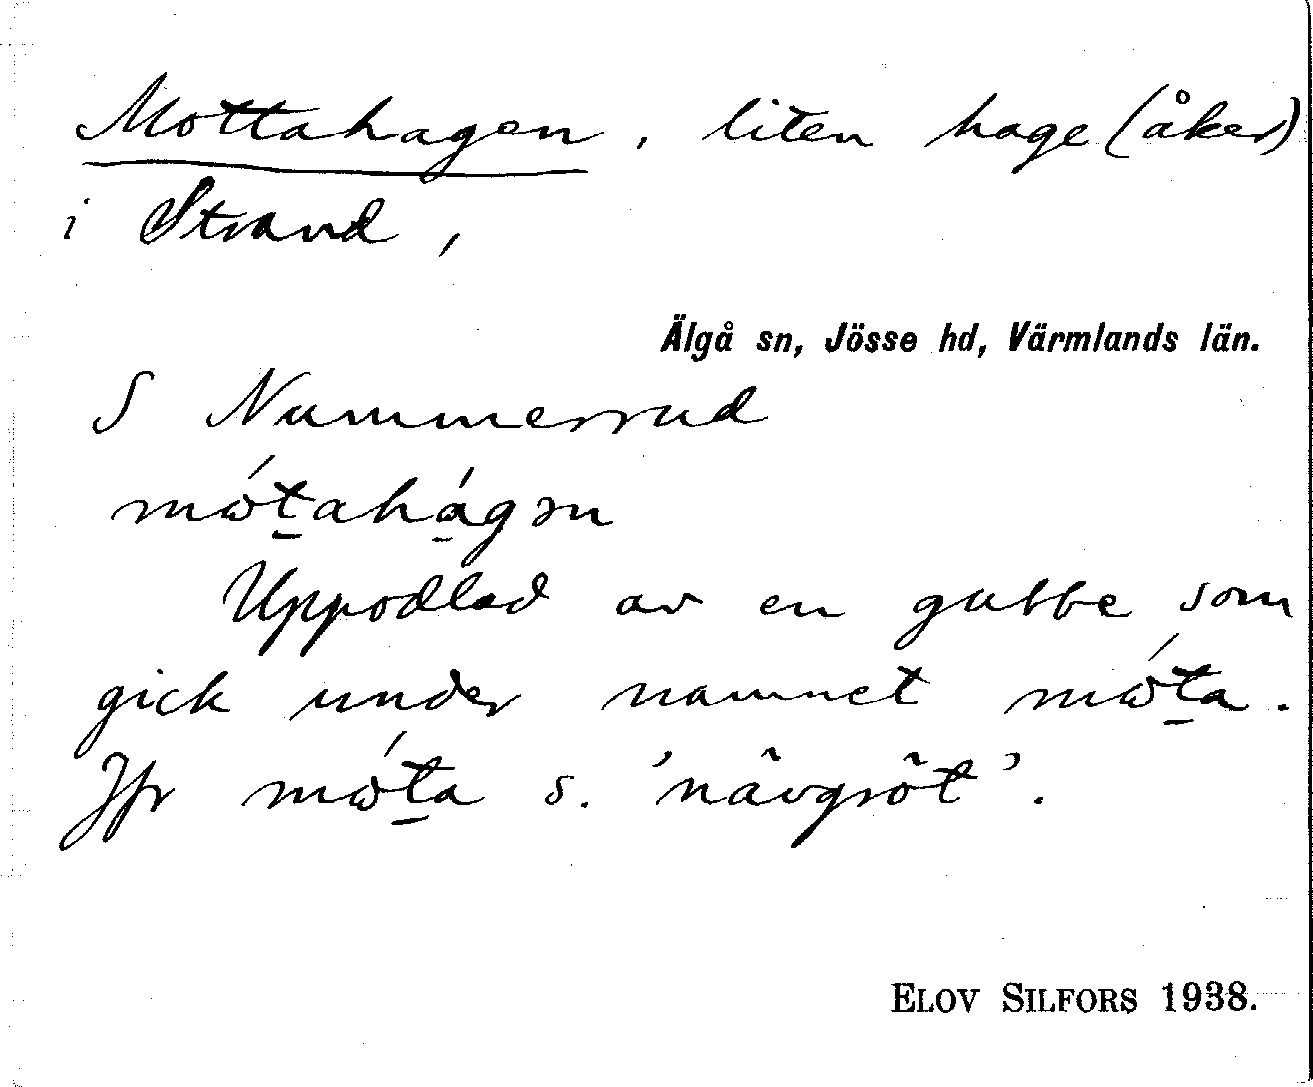 Mottahagen, liten hage (åker)
i Strand,
Älgå sn, Jösse hd, Värmlands län.
S Nummerrud
mώt̲ahá̲gən
Uppodlad av en gubbe som
gick under namnet mώt̲a.
Jfr mώt̲a s. 'nävgröt'.
ELOV SILFORS 1938.